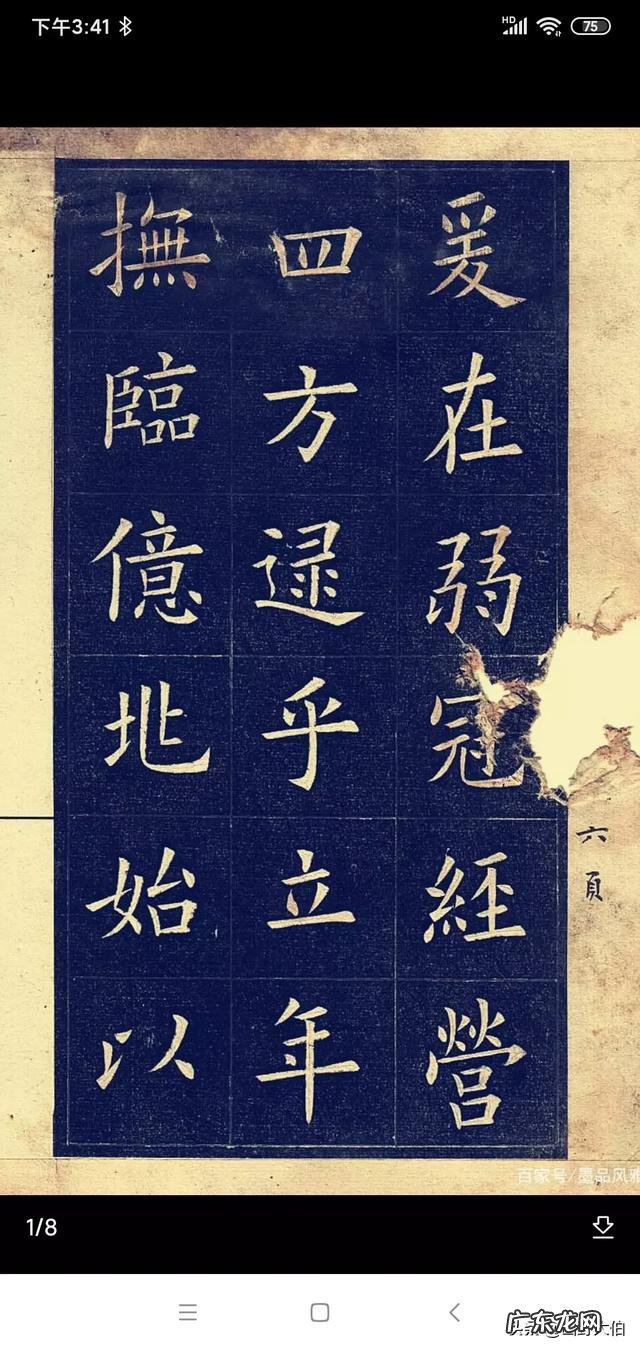 下午3:41
HD
75
爰在弱冠經營
四方逯乎立年
撫臨億兆始以
六頁
百家号/墨品风雅
1/8
广东龙网